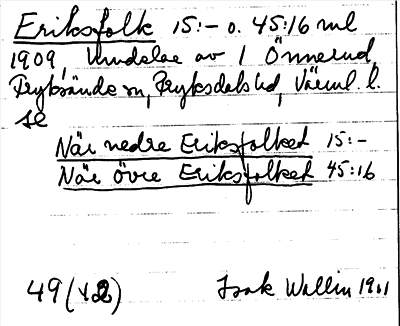 Eriksfolk 15:- o. 45:16 ml
1909, Undelar av 1 Önnerud,
Fryksände sn, Fryksdals hd, Värml. l.
se
När nedre Eriksfolket 15:-
När övre Eriksfolket 45:16
49 (+2) Isak Wallin 1911